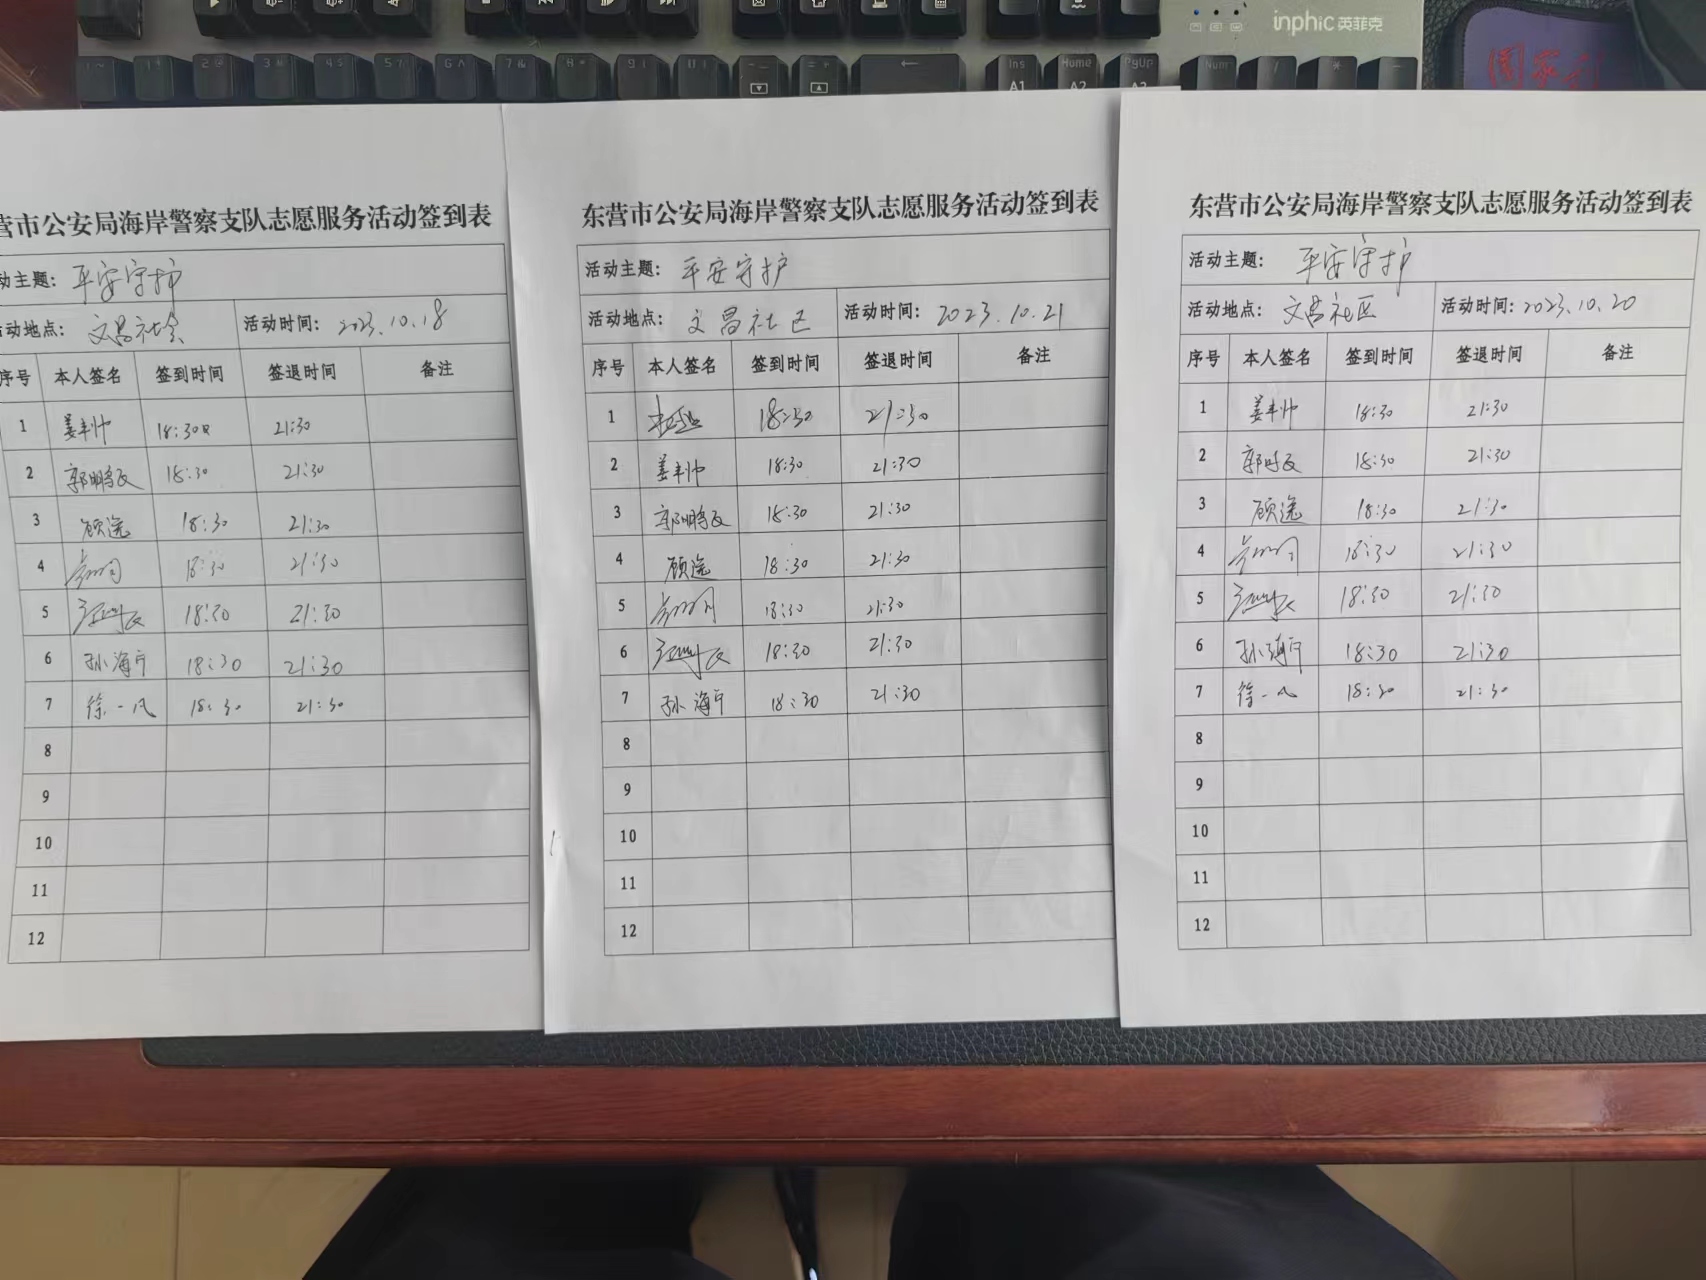 inphic 英菲克
Ins Home PgUp Num / * -
A1 A2 A3
营市公安局海岸警察支队志愿服务活动签到表
动主题： 平安守护
活动地点： 文昌社会 活动时间： 2023.10.18
序号 本人签名 签到时间 签退时间 备注
1 姜丰帅 18:30 21:30
2 郭鹏飞 18:30 21:30
3 顾逸 18:30 21:30
4 18:30 21:30
5 18:30 21:30
6 孙海宁 18:30 21:30
7 徐一凡 18:30 21:30
8
9
10
11
12
东营市公安局海岸警察支队志愿服务活动签到表
活动主题： 平安守护
活动地点： 文昌社区 活动时间： 2023.10.21
序号 本人签名 签到时间 签退时间 备注
1 18:30 21:30
2 姜丰帅 18:30 21:30
3 郭鹏飞 18:30 21:30
4 顾逸 18:30 21:30
5 18:30 21:30
6 18:30 21:30
7 孙海宁 18:30 21:30
8
9
10
11
12
东营市公安局海岸警察支队志愿服务活动签到表
活动主题： 平安守护
活动地点： 文昌社区 活动时间： 2023.10.20
序号 本人签名 签到时间 签退时间 备注
1 姜丰帅 18:30 21:30
2 18:30 21:30
3 顾逸 18:30 21:30
4 18:30 21:30
5 18:30 21:30
6 孙海宁 18:30 21:30
7 徐一凡 18:30 21:30
8
9
10
11
12